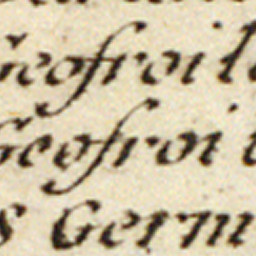 Geofroi l
Geofroi
s Germ